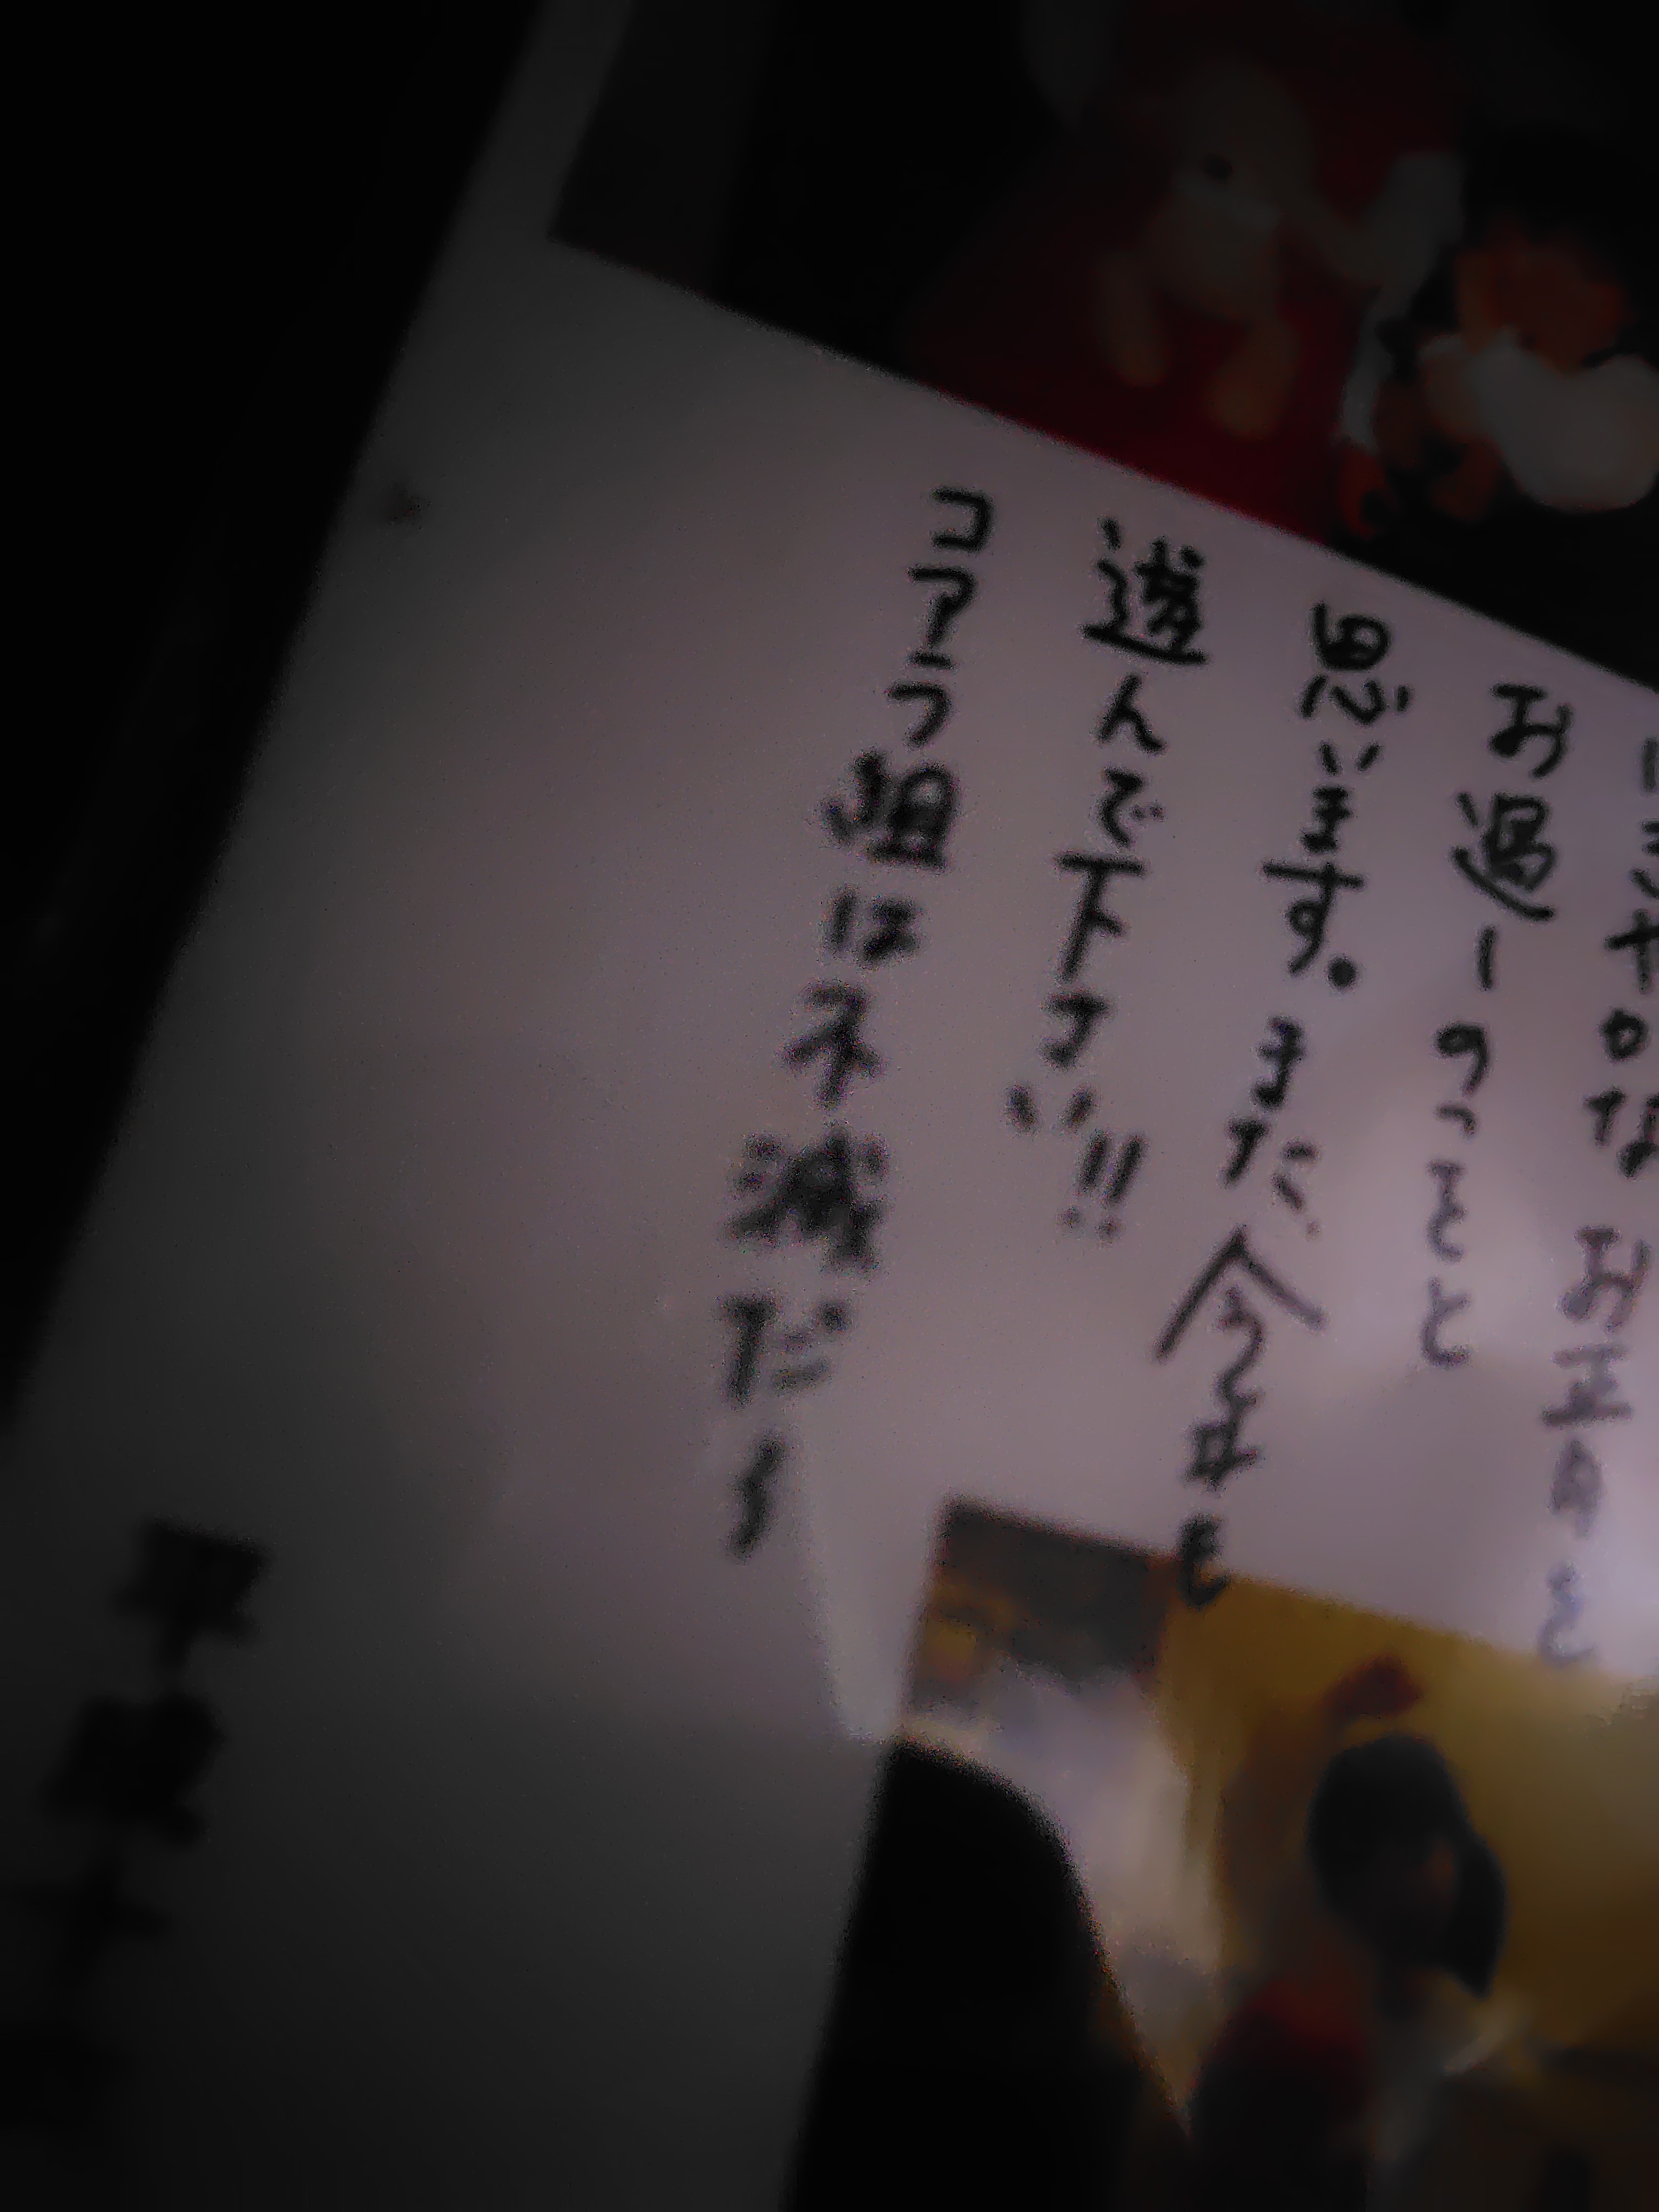 にぎやかな お正月を
お過しのことと
思います。また今年も
遊んで下さい!!
コアラ組は不滅だ〜